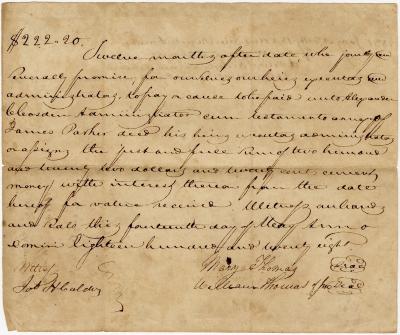 $222.20.
Twelve months after date, we jointly and
severally promise, for ourselves our heirs, executors and
administrators, to pay or cause to be paid unto Alexander
Administrator cum testamento annexo of
James Parker decd his heirs executors administrators
or assigns the just and full sum of two hundred
and twenty two dollars and twenty cents current
money with interest thereon from the date
hereof for value received Witness our hands
and seals this fourteenth day of May Anno
Domini Eighteen hundred and twenty eight
Mary Thomas Seal
Witness
William Thomas of Seal
Jos H